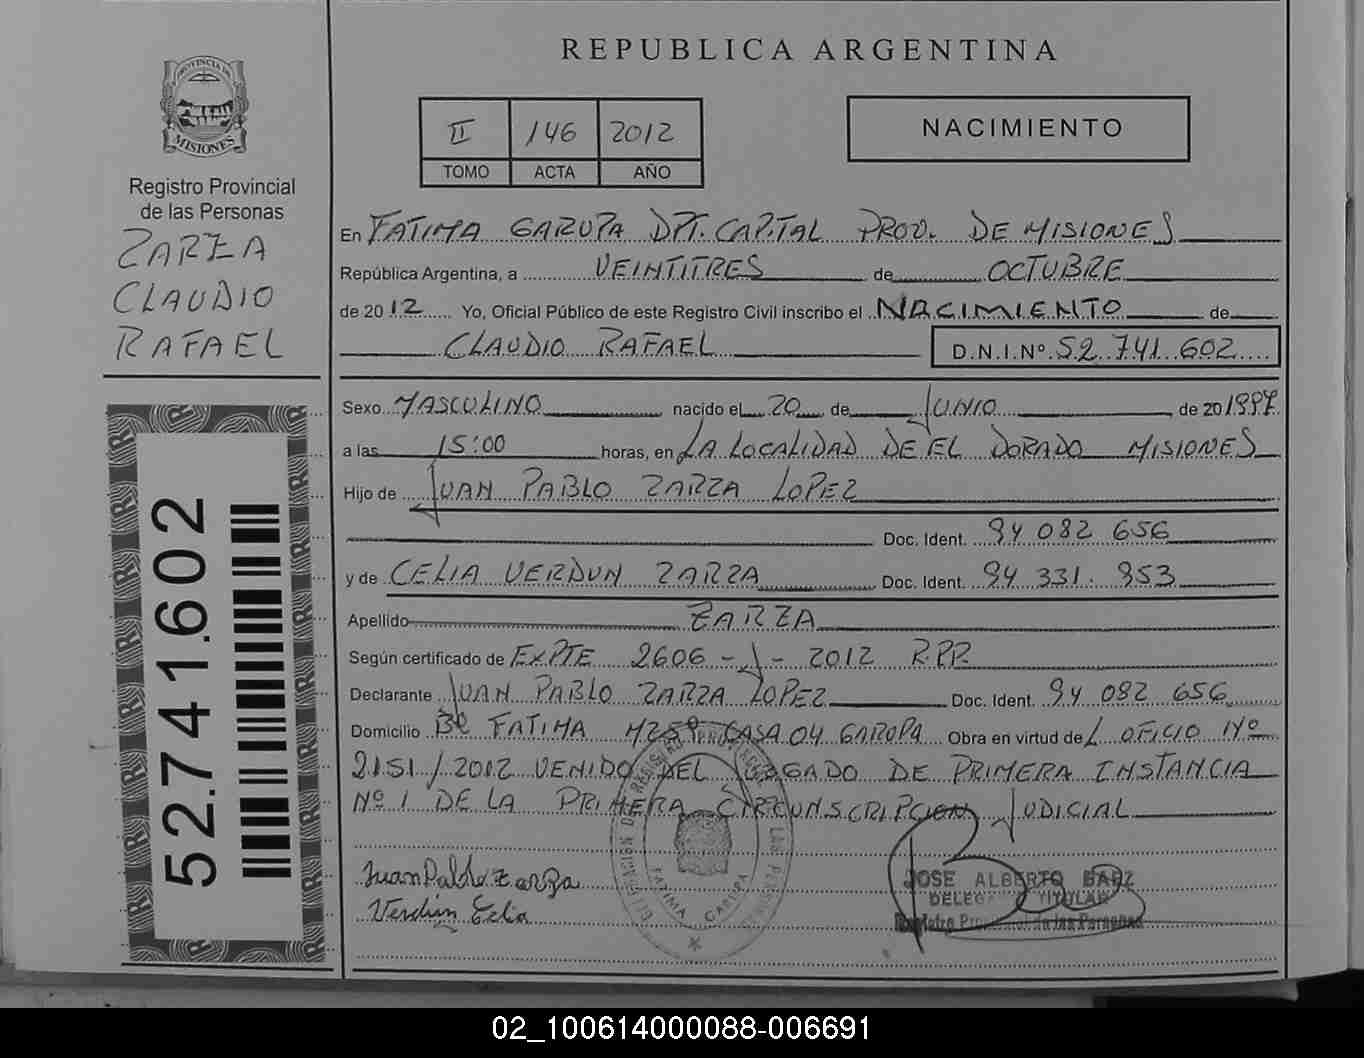 REPUBLICA ARGENTINA
PROVINCIA DE
MISIONES
II 146 2012
TOMO ACTA AÑO
NACIMIENTO
Registro Provincial
de las Personas
ZARZA
CLAUDIO
RAFAEL
En FATIMA GARUPA DPT. CAPITAL PROV. DE MISIONES
República Argentina, a VEINTITRES de OCTUBRE
de 2012 Yo, Oficial Público de este Registro Civil inscribo el NACIMIENTO de
CLAUDIO RAFAEL D.N.I.Nº 52.741.602
Sexo MASCULINO nacido el 20 de JUNIO de 20 1997
a las 15:00 horas, en LA LOCALIDAD DE EL DORADO MISIONES
Hijo de JUAN PABLO ZARZA LOPEZ
Doc. Ident. 94 082 656
y de CELIA VERDUN ZARZA Doc. Ident. 94 331. 953
Apellido ZARZA
Según certificado de EXPTE 2606 - J - 2012 R.P.P.
Declarante JUAN PABLO ZARZA LOPEZ Doc. Ident. 94 082 656
Domicilio Bº FATIMA CASA 04 GARUPA Obra en virtud de OFICIO Nº
2151/2012 VENIDO DEL JUZGADO DE PRIMERA INSTANCIA
Nº 1 DE LA PRIMERA CIRCUNSCRIPCION JUDICIAL
Juan Pablo Zarza
Verdun Celia
FATIMA GARUPA
JOSE ALBERTO BAEZ
DELEGADO TITULAR
Registro Provincial de las Personas
52.741.602
02_100614000088-006691